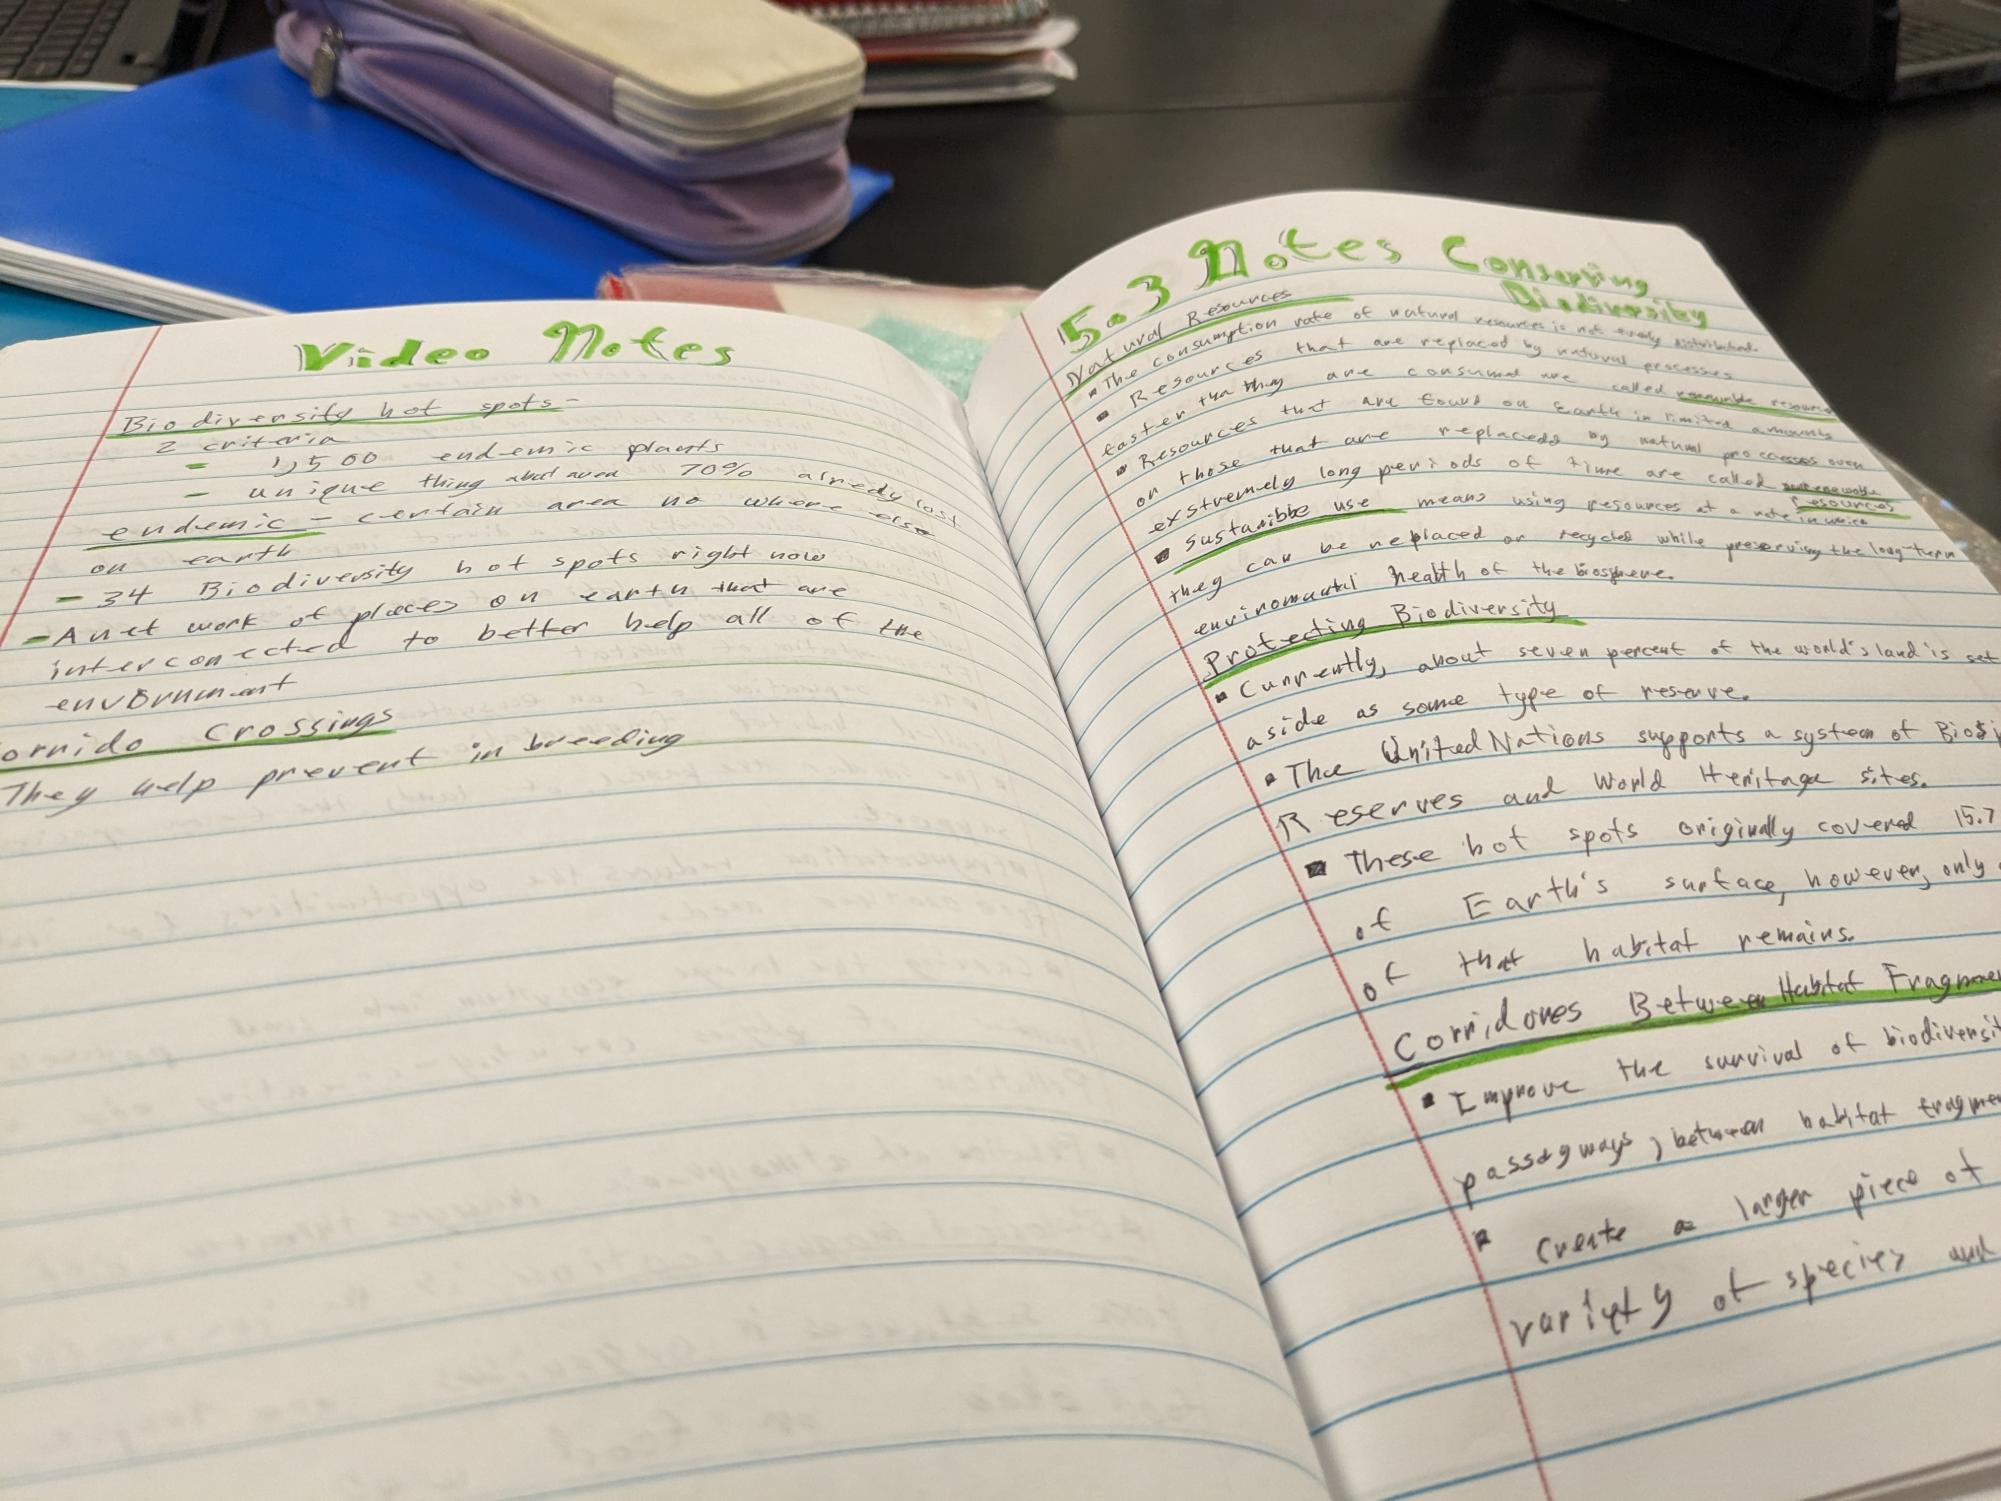 Video Notes
Biodiversity hot spots -
2 criteria
- 1,500 endemic plants
- unique thing about area 70% already lost
endemic - certain area no where else
on earth
- 34 Biodiversity hot spots right now
- A net work of places on earth that are
interconnected to better help all of the
Crossings
They help prevent in breeding
5.3 Notes Conserving
Biodiversity
Natural Resources
▪ The consumption rate of natural resources is not evenly distributed.
▪ Resources that are replaced by natural processes
faster than they are consumed are called renewable resource
▪ Resources that are found on Earth in limited amounts
or those that are replaced by natural processes over
exstremely long periods of time are called
resources
▪ Sustanibbe use means using resources at a rate in which
they can be replaced or recycled while preserving the long-term
enviromental health of the biosphere.
Protecting Biodiversity
▪ Currently, about seven percent of the world's land is set
aside as some type of reserve.
▪ The United Nations supports a system of
Reserves and World Heritage sites.
▪ These hot spots originally covered 15.7
of Earth's surface, however, only
of that habitat remains.
Corridores Between Habitat Fragmen
▪ Improve the survival of biodiversit
passagways, between habitat fragme
▪ Create a larger piece of
variety of species and